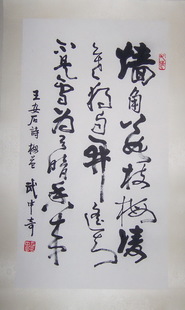 墻角数枝梅凌
寒独自开遥知
不是雪为有暗香来
王安石詩 梅花 武中奇